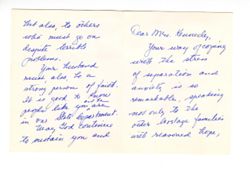 Dear Mrs. Kennedy,
Your way of coping
with the stress
of separation and
anxiety is so
remarkable, speaking
not only to the
other hostage families
with reasoned hope,
but also, to others
who must go on
despite terrible
problems.
Your husband
must also, be a
strong person of faith.
It is good to know
people like you are
in our State Department.
May God continue
to sustain you and